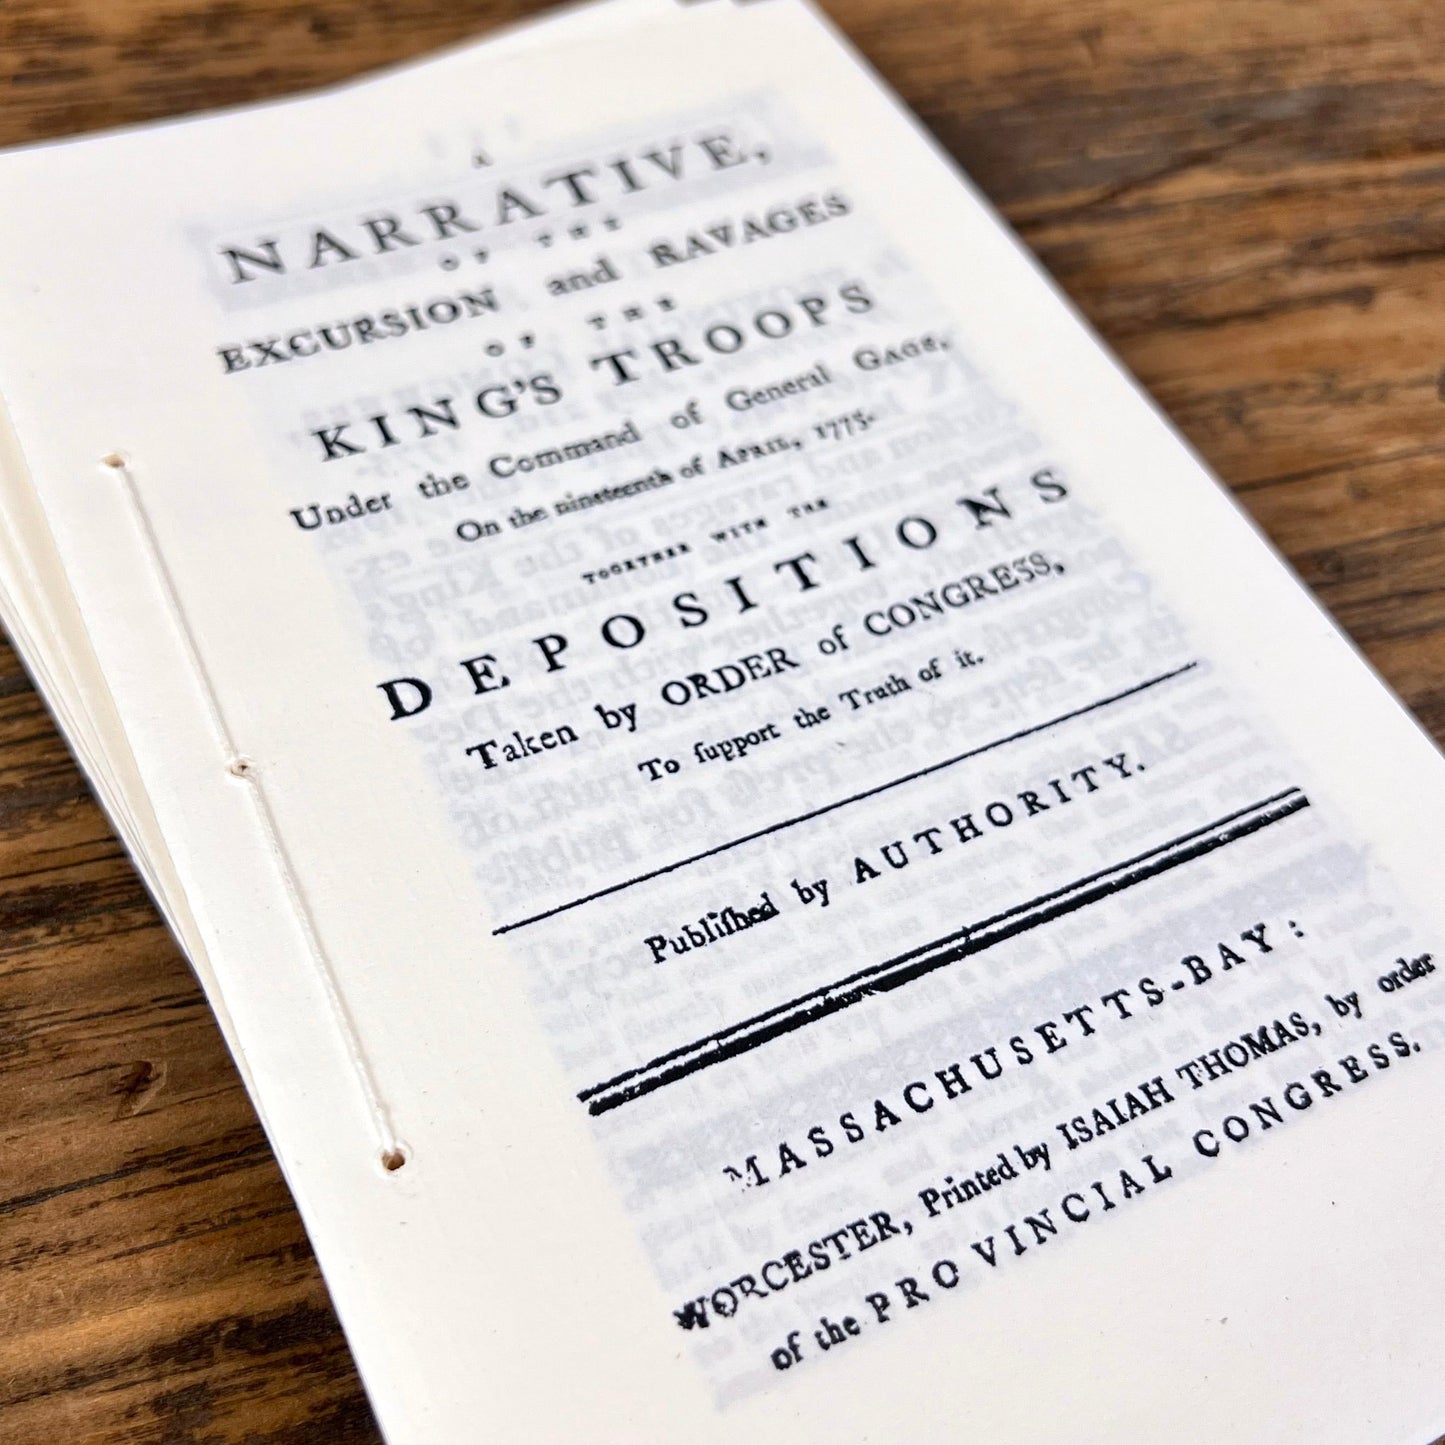 A
NARRATIVE,
OF THE
EXCURSION and RAVAGES
OF THE
KING'S TROOPS
Under the Command of General GAGE,
On the nineteenth of APRIL, 1775.
TOGETHER WITH THE
DEPOSITIONS
Taken by ORDER of CONGRESS,
To ſupport the Truth of it.
Publiſhed by AUTHORITY.
MASSACHUSETTS-BAY:
WORCESTER, Printed by ISAIAH THOMAS, by order
of the PROVINCIAL CONGRESS.